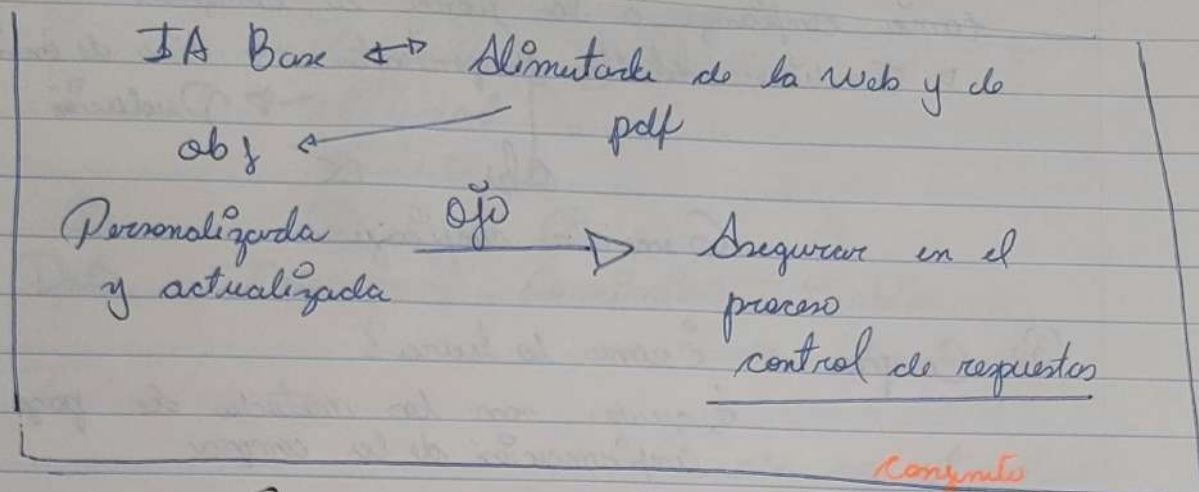 IA Base ↔ Alimentada de la web y de
pdf
obj ←
Personalizada
y actualizada
ojo →
Asegurar en el
proceso
control de respuestas